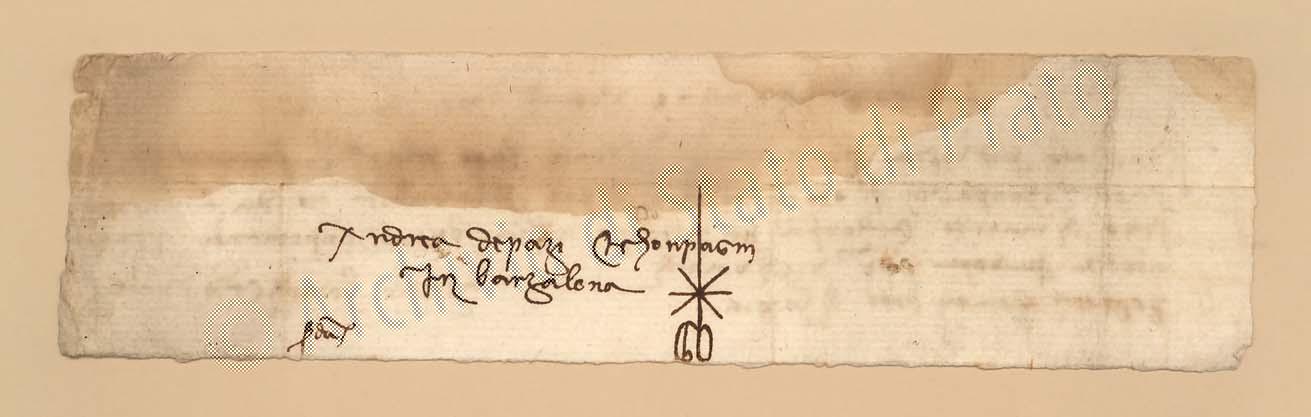 Andrea de pazi & chonpagni
In barzalena
© Archivio di Stato di Prato